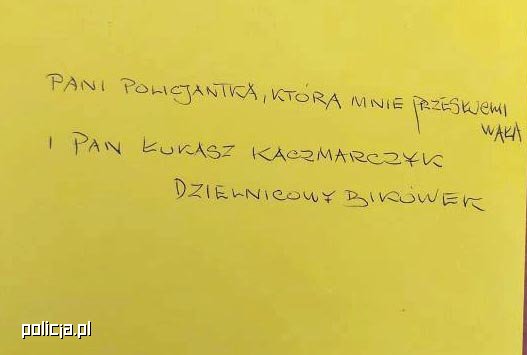 PANI POLICJANTKA, KTÓRA MNIE PRZESŁUCHI
WAŁA
I PAN ŁUKASZ KACZMARCZYK
DZIELNICOWY BIKÓWEK
policja.pl